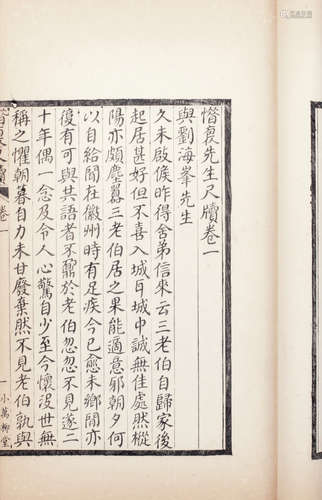 惜裒先生尺牘卷一
與劉海峯先生
久未啟候昨得舍弟信來云三老伯自歸家後
起居甚好但不喜入城日城中誠無佳處然樅
陽亦頗塵囂三老伯居之果能適意邪朝夕何
以自給聞在徽州時有足疾今已愈未鄉閒亦
復有可與共語者不鼐於老伯忽忽不見遂二
十年偶一念及令人心驚自少至今懷沒世無
稱之懼朝暮自力未甘廢棄然不見老伯孰與
卷一
一
小萬柳堂